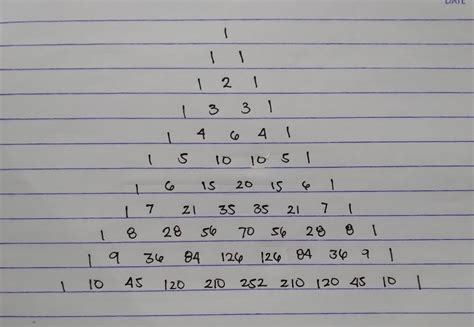 DATE
1
1 1
1 2 1
1 3 3 1
1 4 6 4 1
1 5 10 10 5 1
1 6 15 20 15 6 1
1 7 21 35 35 21 7 1
1 8 28 56 70 56 28 8 1
1 9 36 84 126 126 84 36 9 1
1 10 45 120 210 252 210 120 45 10 1